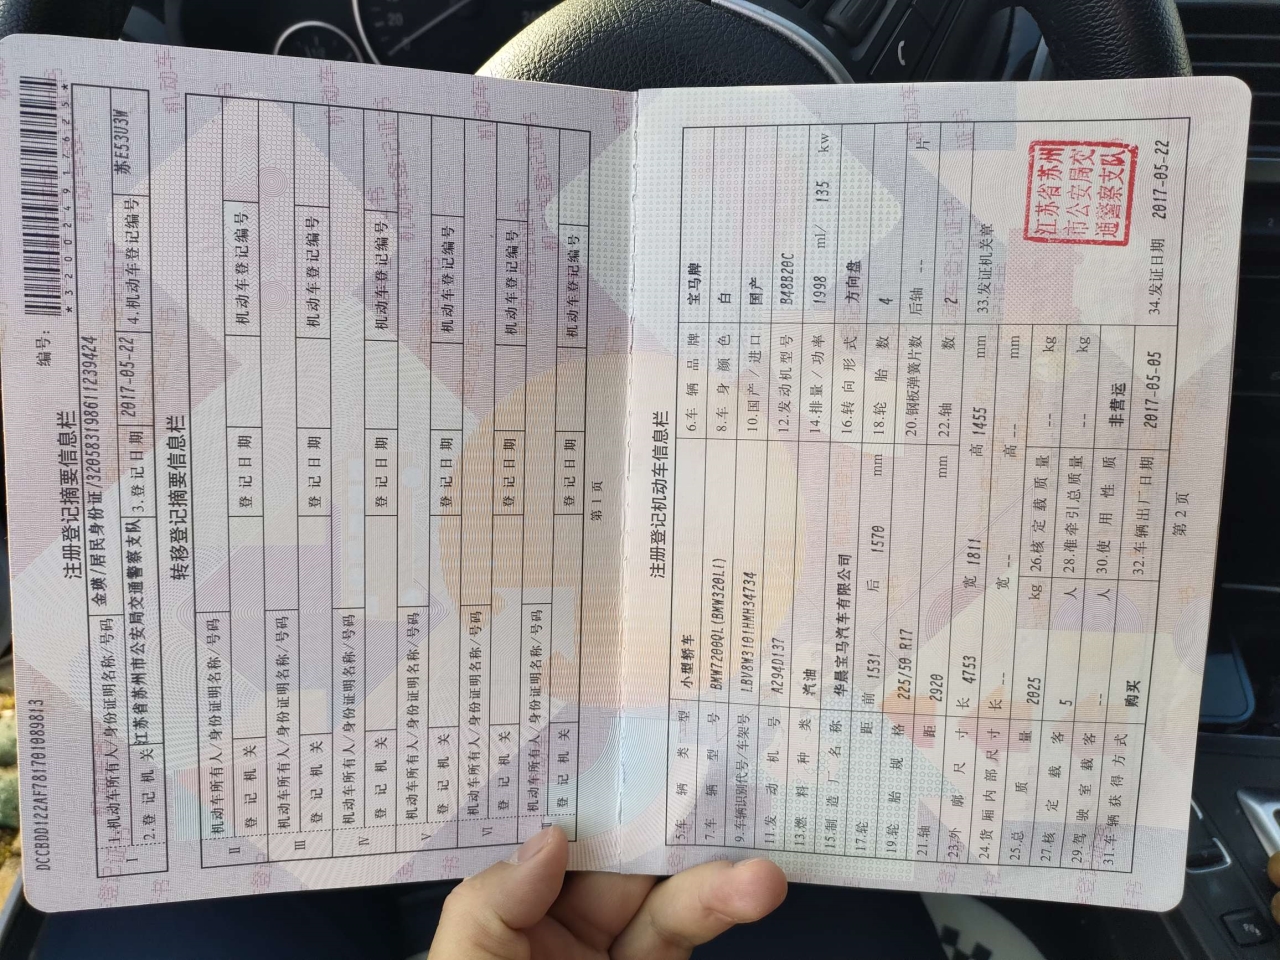 DCCBDD122AF781701089813
编号:
*320024917625*
注册登记摘要信息栏
Ⅰ 1.机动车所有人/身份证明名称/号码 金瑛/居民身份证/320583198611239424
2.登记机关 江苏省苏州市公安局交通警察支队 3.登记日期 2017-05-22 4.机动车登记编号 苏E53U3W
转移登记摘要信息栏
Ⅱ 机动车所有人/身份证明名称/号码
登记机关 登记日期 机动车登记编号
Ⅲ 机动车所有人/身份证明名称/号码
登记机关 登记日期 机动车登记编号
Ⅳ 机动车所有人/身份证明名称/号码
登记机关 登记日期 机动车登记编号
Ⅴ 机动车所有人/身份证明名称/号码
登记机关 登记日期 机动车登记编号
Ⅵ 机动车所有人/身份证明名称/号码
登记机关 登记日期 机动车登记编号
机动车所有人/身份证明名称/号码
登记机关 登记日期 机动车登记编号
第1页
注册登记机动车信息栏
5.车辆类型 小型轿车 6.车辆品牌 宝马牌
7.车辆型号 BMW7200QL(BMW320LI) 8.车身颜色 白
9.车辆识别代号/车架号 LBV8W3101HMH34734 10.国产/进口 国产
11.发动机号 A294D137 12.发动机型号 B48B20C
13.燃料种类 汽油 14.排量/功率 1998 ml/ 135 kw
15.制造厂名称 华晨宝马汽车有限公司 16.转向形式 方向盘
17.轮距 前 1531 后 1570 mm 18.轮胎数 4
19.轮胎规格 225/50 R17 20.钢板弹簧片数 后轴 -- 片
21.轴距 2920 mm 22.轴数 2
23.外廓尺寸 长 4753 宽 1811 高 1455 mm 33.发证机关章
24.货厢内部尺寸 长 -- 宽 -- 高 -- mm
25.总质量 2025 kg 26.核定载质量 -- kg
27.核定载客 5 人 28.准牵引总质量 -- kg
29.驾驶室载客 -- 人 30.使用性质 非营运
31.车辆获得方式 购买 32.车辆出厂日期 2017-05-05 34.发证日期 2017-05-22
江苏省苏州
市公安局交
通警察支队
第2页